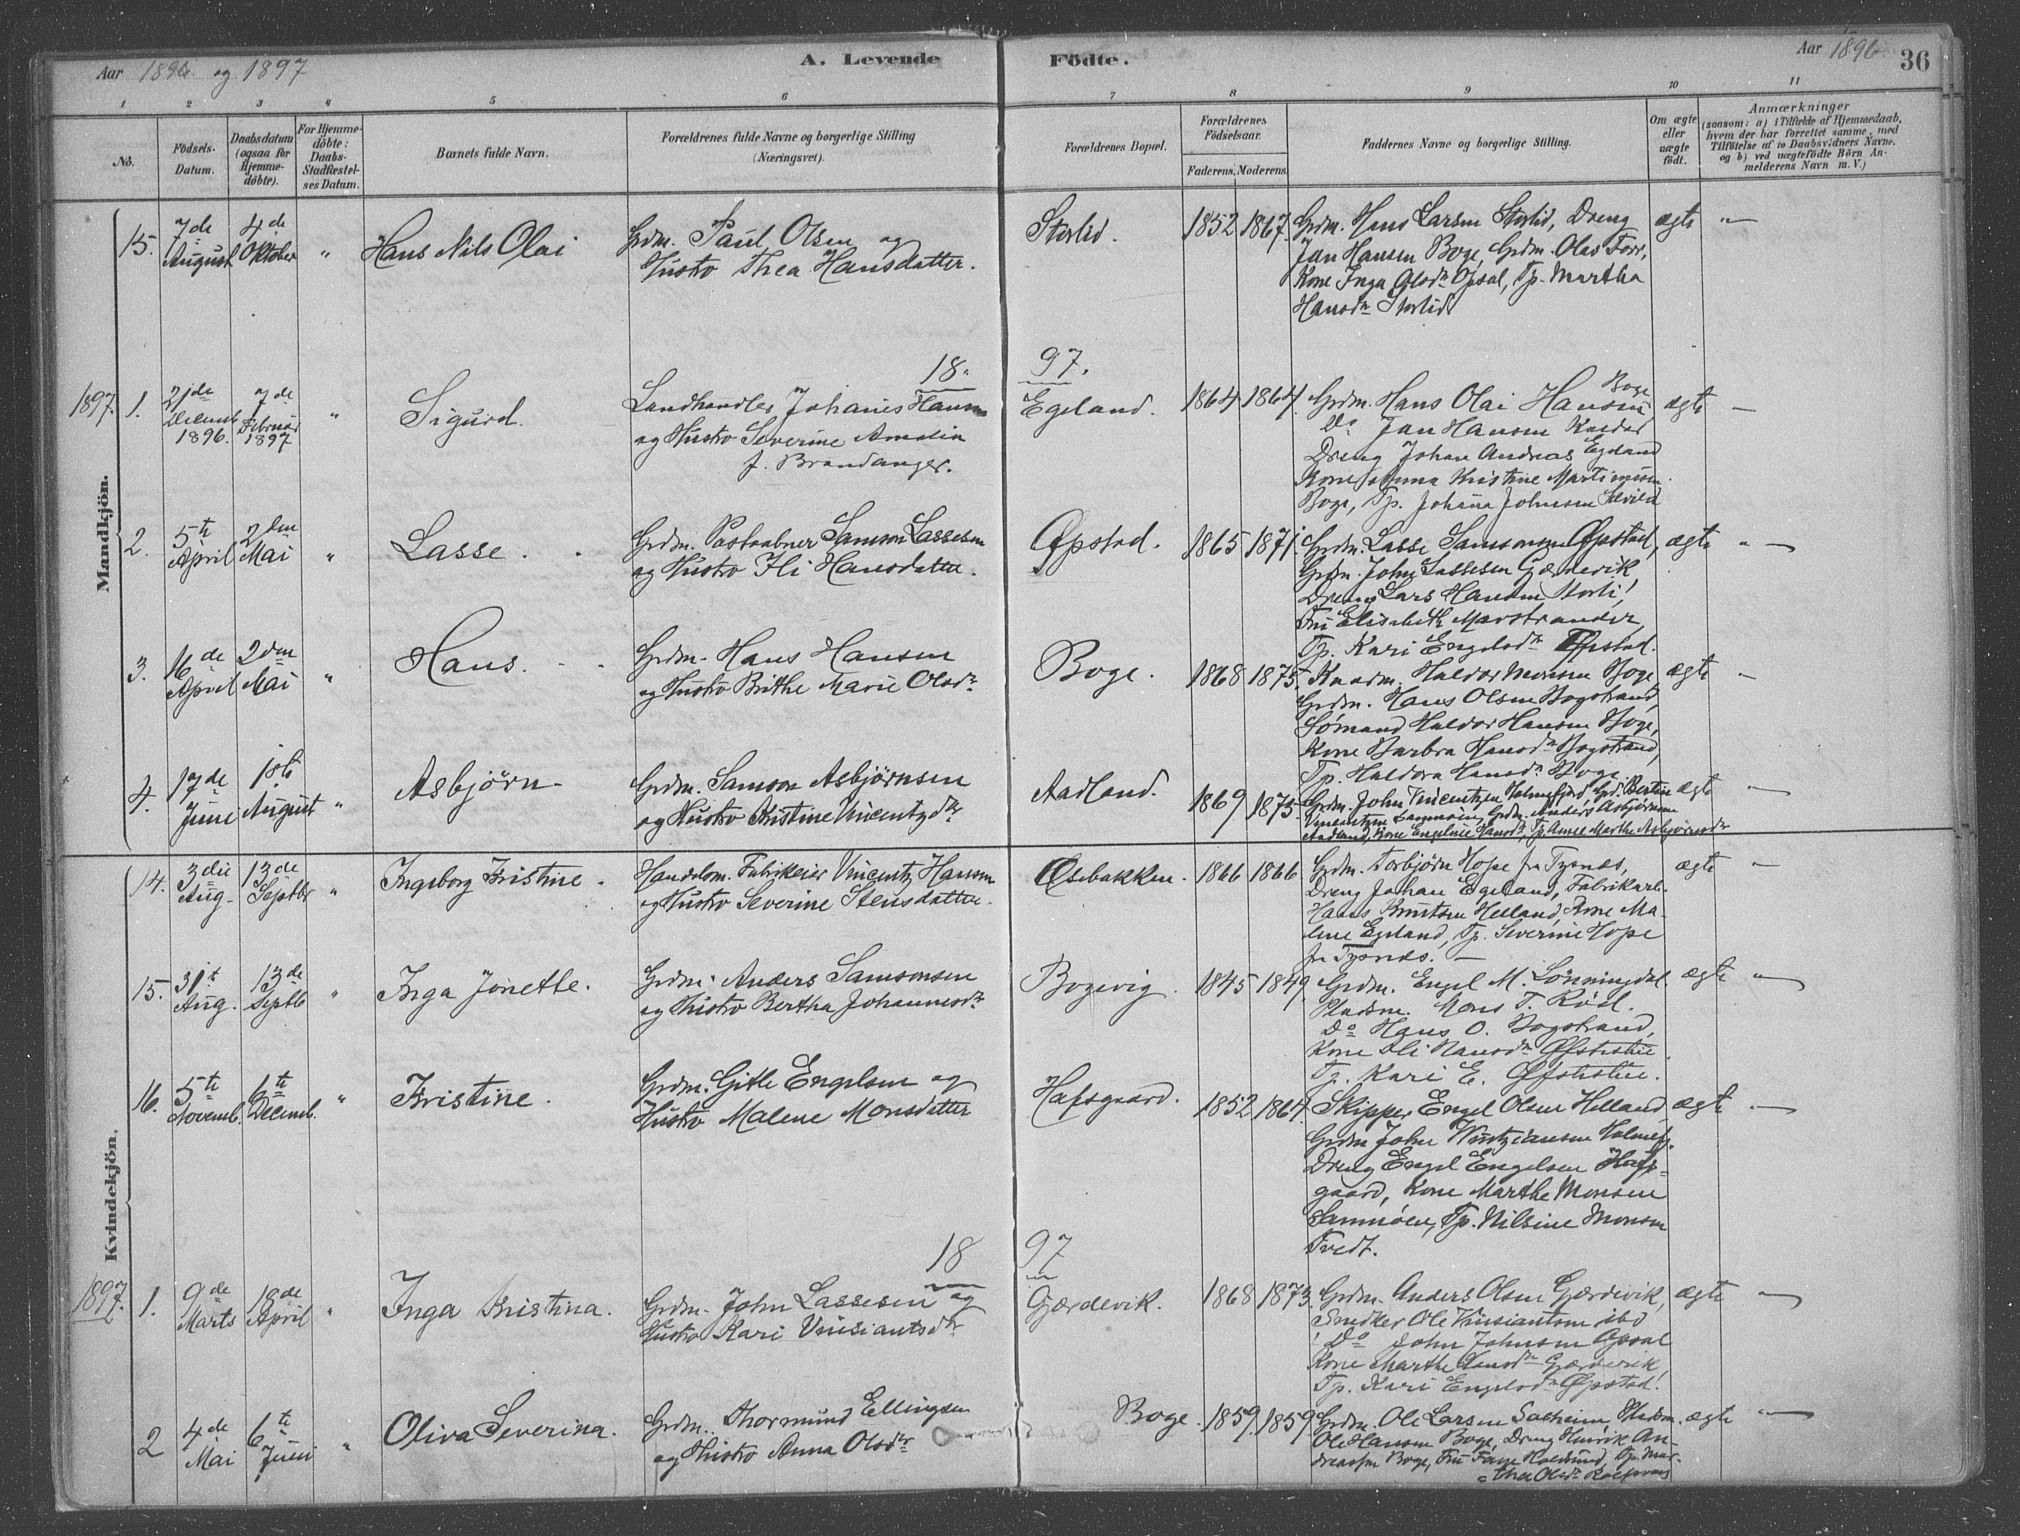 Aar 1896 og 1897
A. Levende Födte.
Aar 1896.
36
1 2 3 4 5 6 7 8 9 10 11
No.
Födsels-Datum.
Daabsdatum (ogsaa for Hjemme-döbte).
For Hjemme-döbte: Daabs-Stadfæstel-ses Datum.
Barnets fulde Navn.
Forældrenes fulde Navne og borgerlige Stilling (Næringsvei).
Forældrenes Bopæl.
Forældrenes Födselsaar.
Faderens. Moderens.
Faddernes Navne og borgerlige Stilling.
Om ægte eller uægte födt.
Anmærkninger
(saasom: a) i Tilfælde af Hjemmedaab,
hvem der har forrettet samme, med
Tilföielse af to Daabsvidners Navne.
og b) ved uægtefödte Börn An-
melderens Navn m. V.)
Mandkjön.
15. 7de August 4de Oktober " Hans Nils Olai
Grdm. Paul Olsen og
Hustro Thea Hansdatter.
Storlid. 1852 1867.
Grdm. Hans Larsen Storlid, Dreng
Jan Hansen Boge, Grdm. Olas Torr,
Kone Inga Olsdr Opsal, Tp. Martha
Hansdr Storlid
ægte "
1897.
1897. 1. 21de Decemb 1896. 7de Februar 1897 " Sigurd.
Landhandler Johanes Hansen
og Hustro Severine Amalia
f. Brandanger.
Egeland. 1864 1864.
Grdm. Hans Olai Hansen Boge
Do Jan Hansen
Dreng Johan Andreas Egeland
Kone Anna Kristine Martinusen
Boge, Tp. Johana Johnsen
ægte
2. 5te April 2den Mai " Lasse.
Grdm. Postaabner Samson Lassesen
og Hustro Ili Hansdatter.
Øpstad. 1865 1871.
Grdm. Lasse Samsonsen Øpstad,
Grdm. John Lassesen Gjærdevik
Dreng Lars Hansen Storli,
Fru Elisabeth Marstrander,
Tp. Kari Engelsdr Øpstad.
ægte "
3. 16de April 2den Mai " Hans.
Grdm. Hans Hansen
og Hustro Brithe Marie Olsdr
Boge. 1868 1875.
Kaarm. Haldor Monsen Boge
Grdm. Hans Olsen Bogstrand,
Sømand Haldor Hansen Boge,
Kone Barbra Hansdr Bogstrand,
Tp. Haldora Hansdr Boge
ægte
4. 17de Juni 1ste August " Asbjørn
Grdm. Samson Asbjørnsen
og Hustro Kristine Vincentzdr
Aadland. 1869 1875.
Grdm. John Vincentzen Holmefjord, Grd. Bertin
Vincentzen Samnøen, Grdm. Anders Asbjørnsen
Aadland, Kone Engeline Hansdr, Tp. Anne Marthe Asbjørnsdr
ægte
Kvindekjön.
14. 3die Aug. 13de Septbr " Ingeborg Kristine.
Handelsm. Fabrikeier Vincentz Hansen
og Hustro Severine Stensdatter.
Osebakken. 1866 1866
Grdm. Torbjørn Hope fra Tysnæs,
Dreng Johan Egeland, Fabrikarb.
Hans Knutsen Helland, Kone Ma-
lene Egeland, Tp. Severine Hope
fr. Tysnæs.
ægte
15. 31te Aug. 13de Septb " Inga Jonette.
Grdm. Anders Samsonsen
og Hustro Bertha Johannesdr
Bogevig. 1845 1849
Grdm. Engel M. Lønningdal.
Pladsm. Mons T. Røsl.
Do Hans O. Bogstrand,
Kone Oli Hansdr Øfstestue
Tp. Kari E. Øfstestue.
ægte "
16. 5te Novemb. 6te Decemb. " Kristine.
Grdm. Gitle Engelsen og
Hustro Malene Monsdatter
Hafsgaard. 1852 1864
Skipper Engel Olsen Helland
Grdm John Holmefj.
Dreng Engel Engelsen Hafs-
gaard, Kone Marthe Monsen
Samnøen, Tp. Nilsine Monsen
Tvedt.
ægte
1897
1897. 1. 9de Marts 18de April " Inga Kristina.
Grdm. John Lassesen og
Hustro Kari Vinsiantsdr
Gjærdevik. 1868 1873.
Grdm. Anders Olsen Gjærdevik,
Snedker Ole Vinsiantsen ibd
Do John Johnsen Opsal
Kone Marthe Hansdr Gjærdevik,
Tp. Kari Engelsdr Øpstad.
ægte
2 4de Mai 6te Juni " Oliva Severina.
Grdm. Thormund Ellingsen
og Hustro Anna Olsdr
Boge. 1859. 1859
Grdm. Ole Larsen Salheim,
Ole Hansen Boge, Dreng Hinrik An-
dreassen Boge, Tp. Mar-
tha Olsdr
ægte